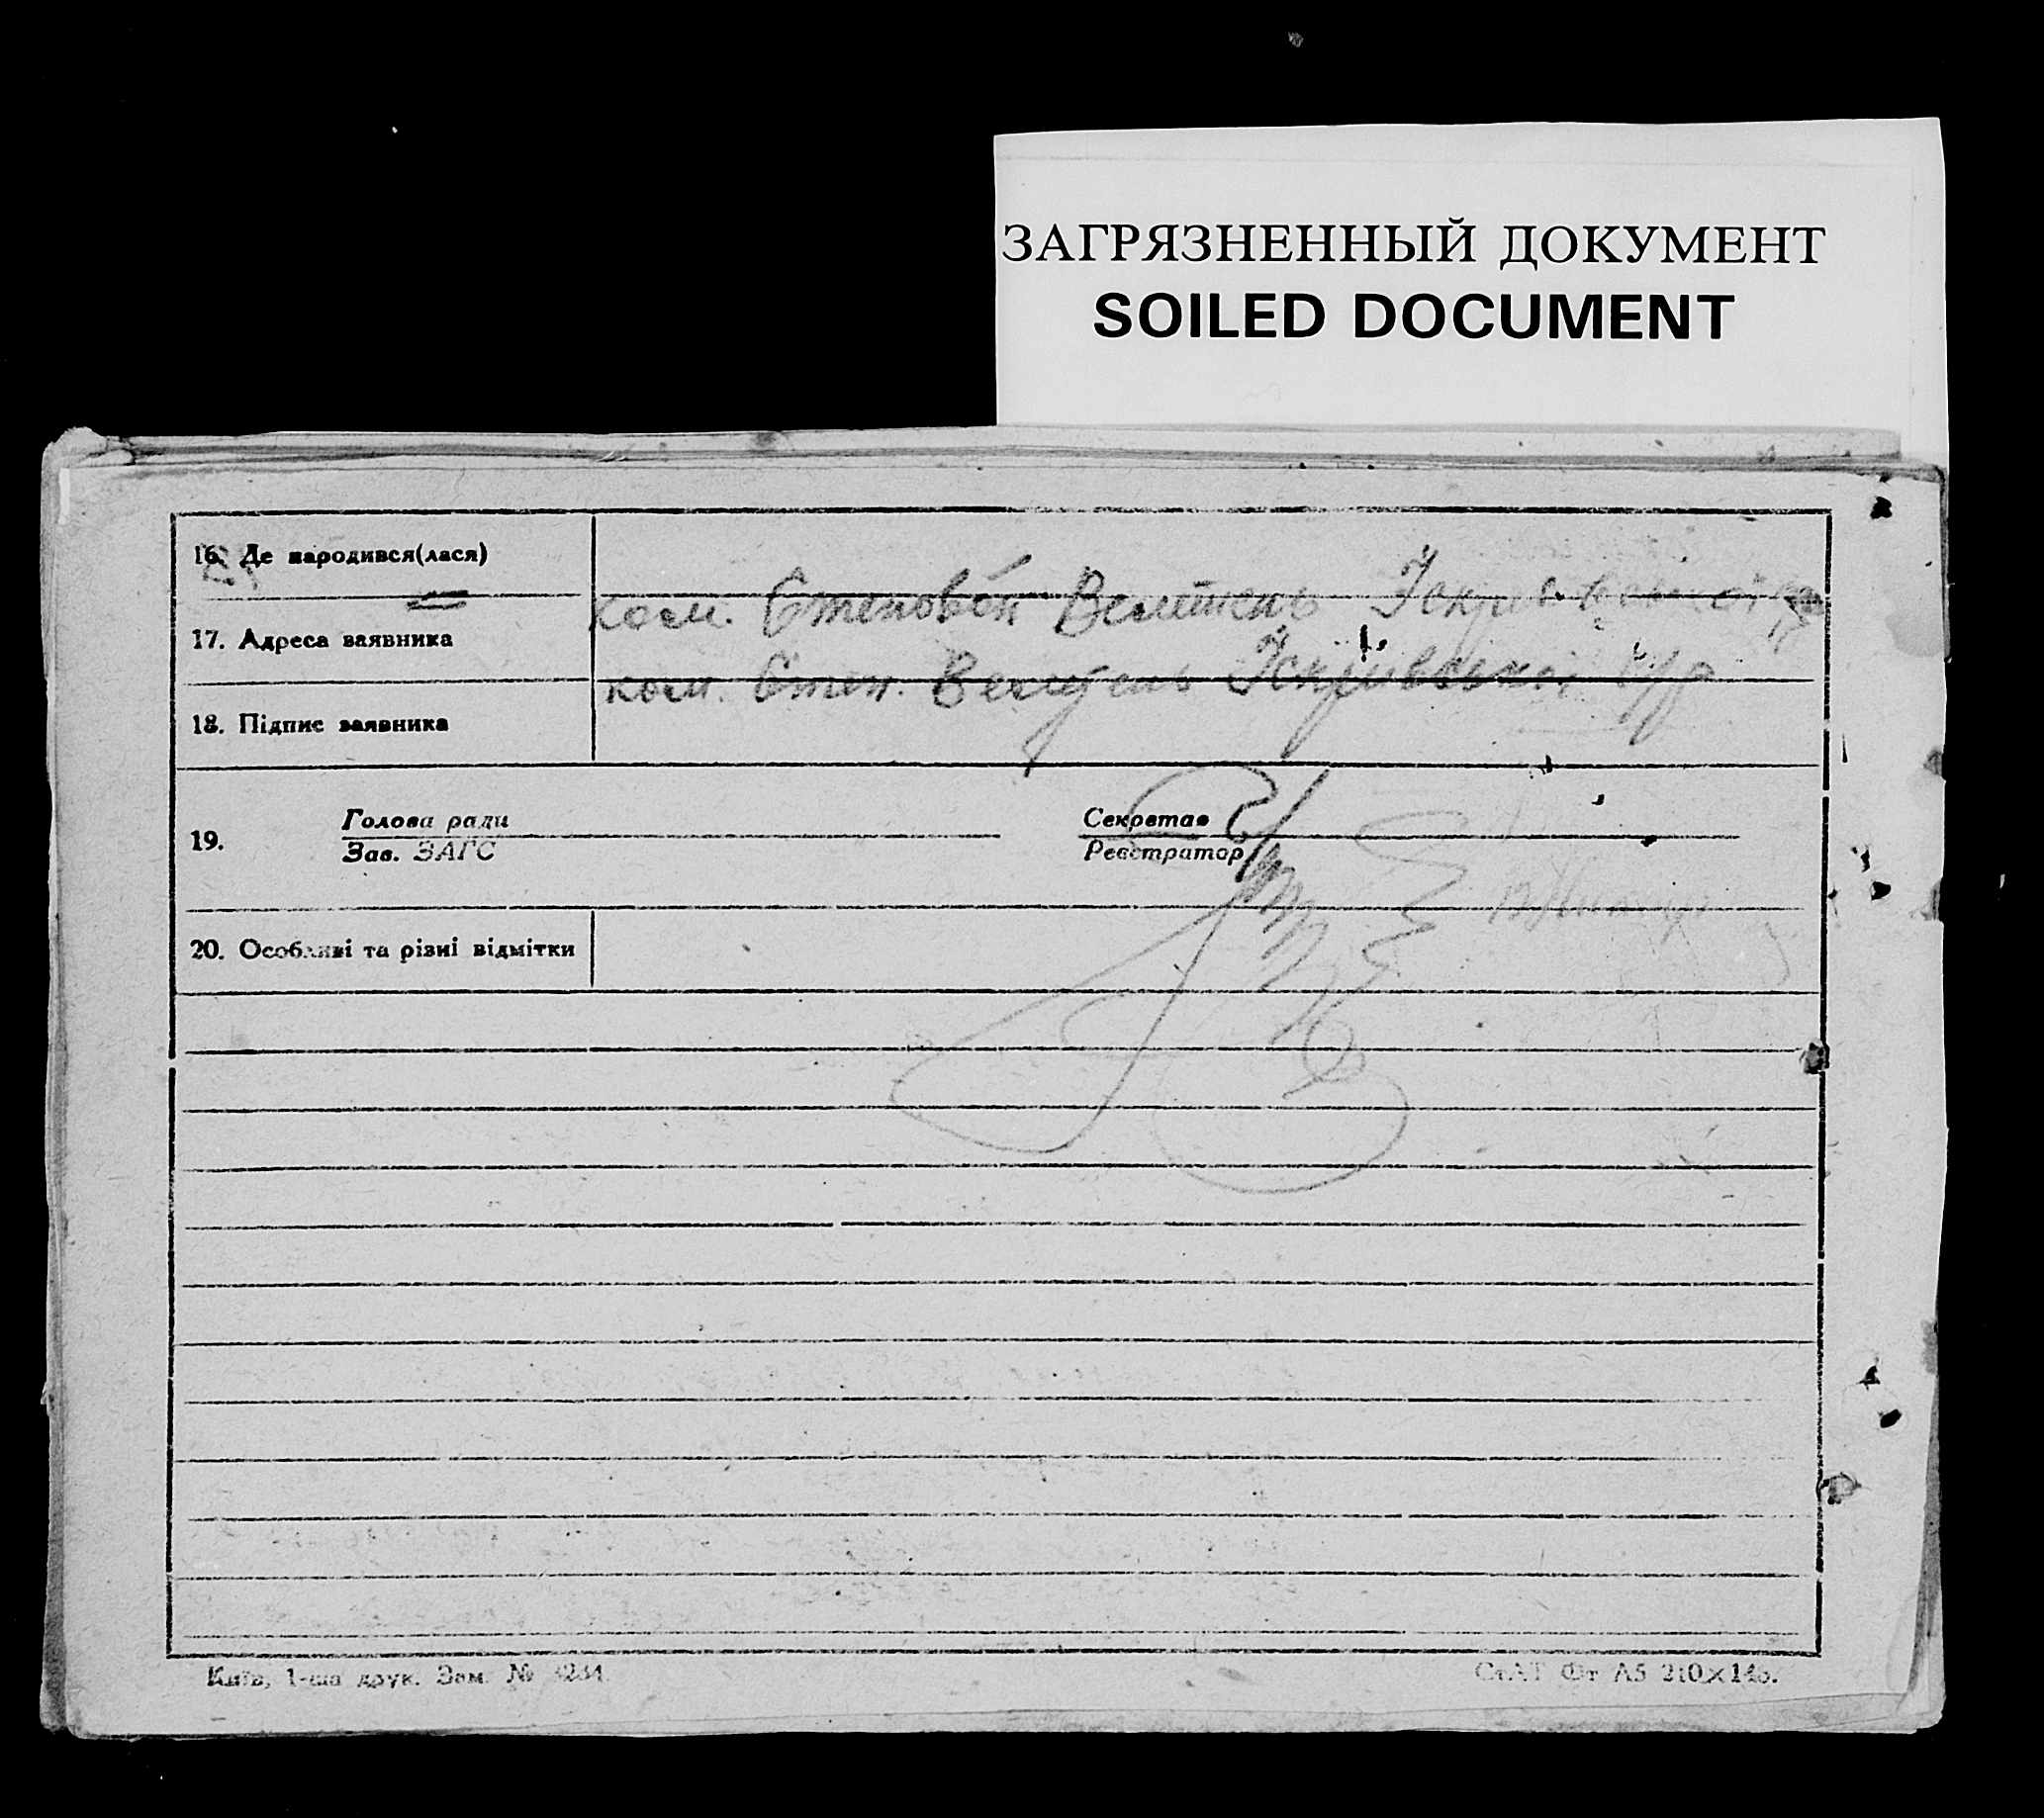 ЗАГРЯЗНЕННЫЙ ДОКУМЕНТ
SOILED DOCUMENT
16. Де народився(лася)
ком. Степовой Велетень
17. Адреса заявника
ком. Степ. Велетень Іскрівської с/р
18. Підпис заявника
19.
Голова ради
Зав. ЗАГС
Секретар
Реєстратор
20. Особливі та різні відмітки
Київ, 1-ша друк. Зам. №
СтАТ Фт А5 210×148.